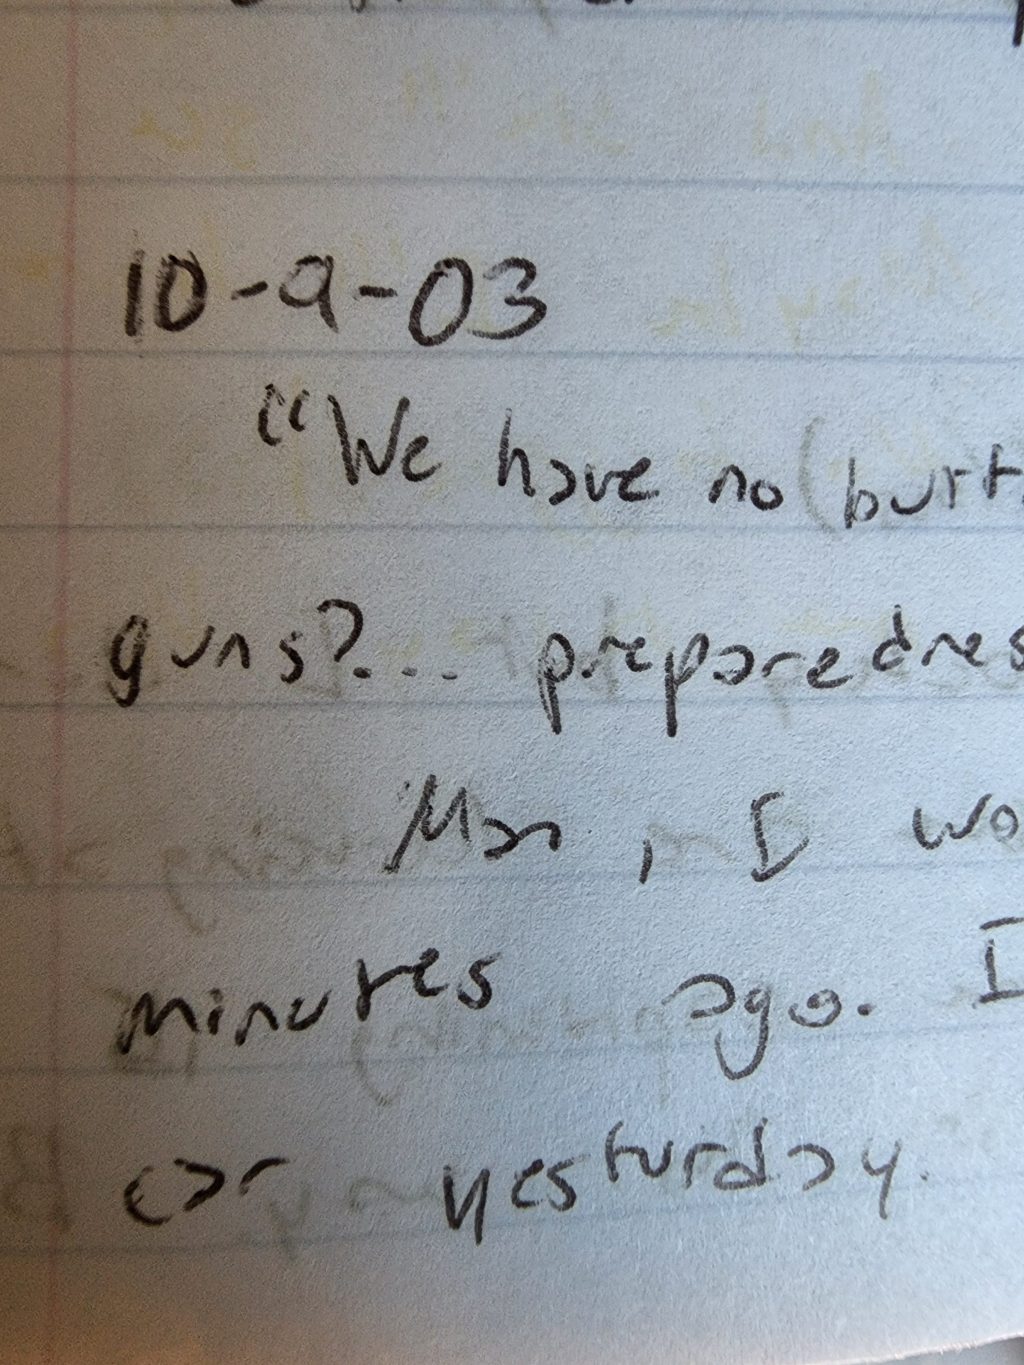 10-9-03
"We have no (butt
guns?... preparednes
Man, I wo
minutes ago. I
car yesturday.